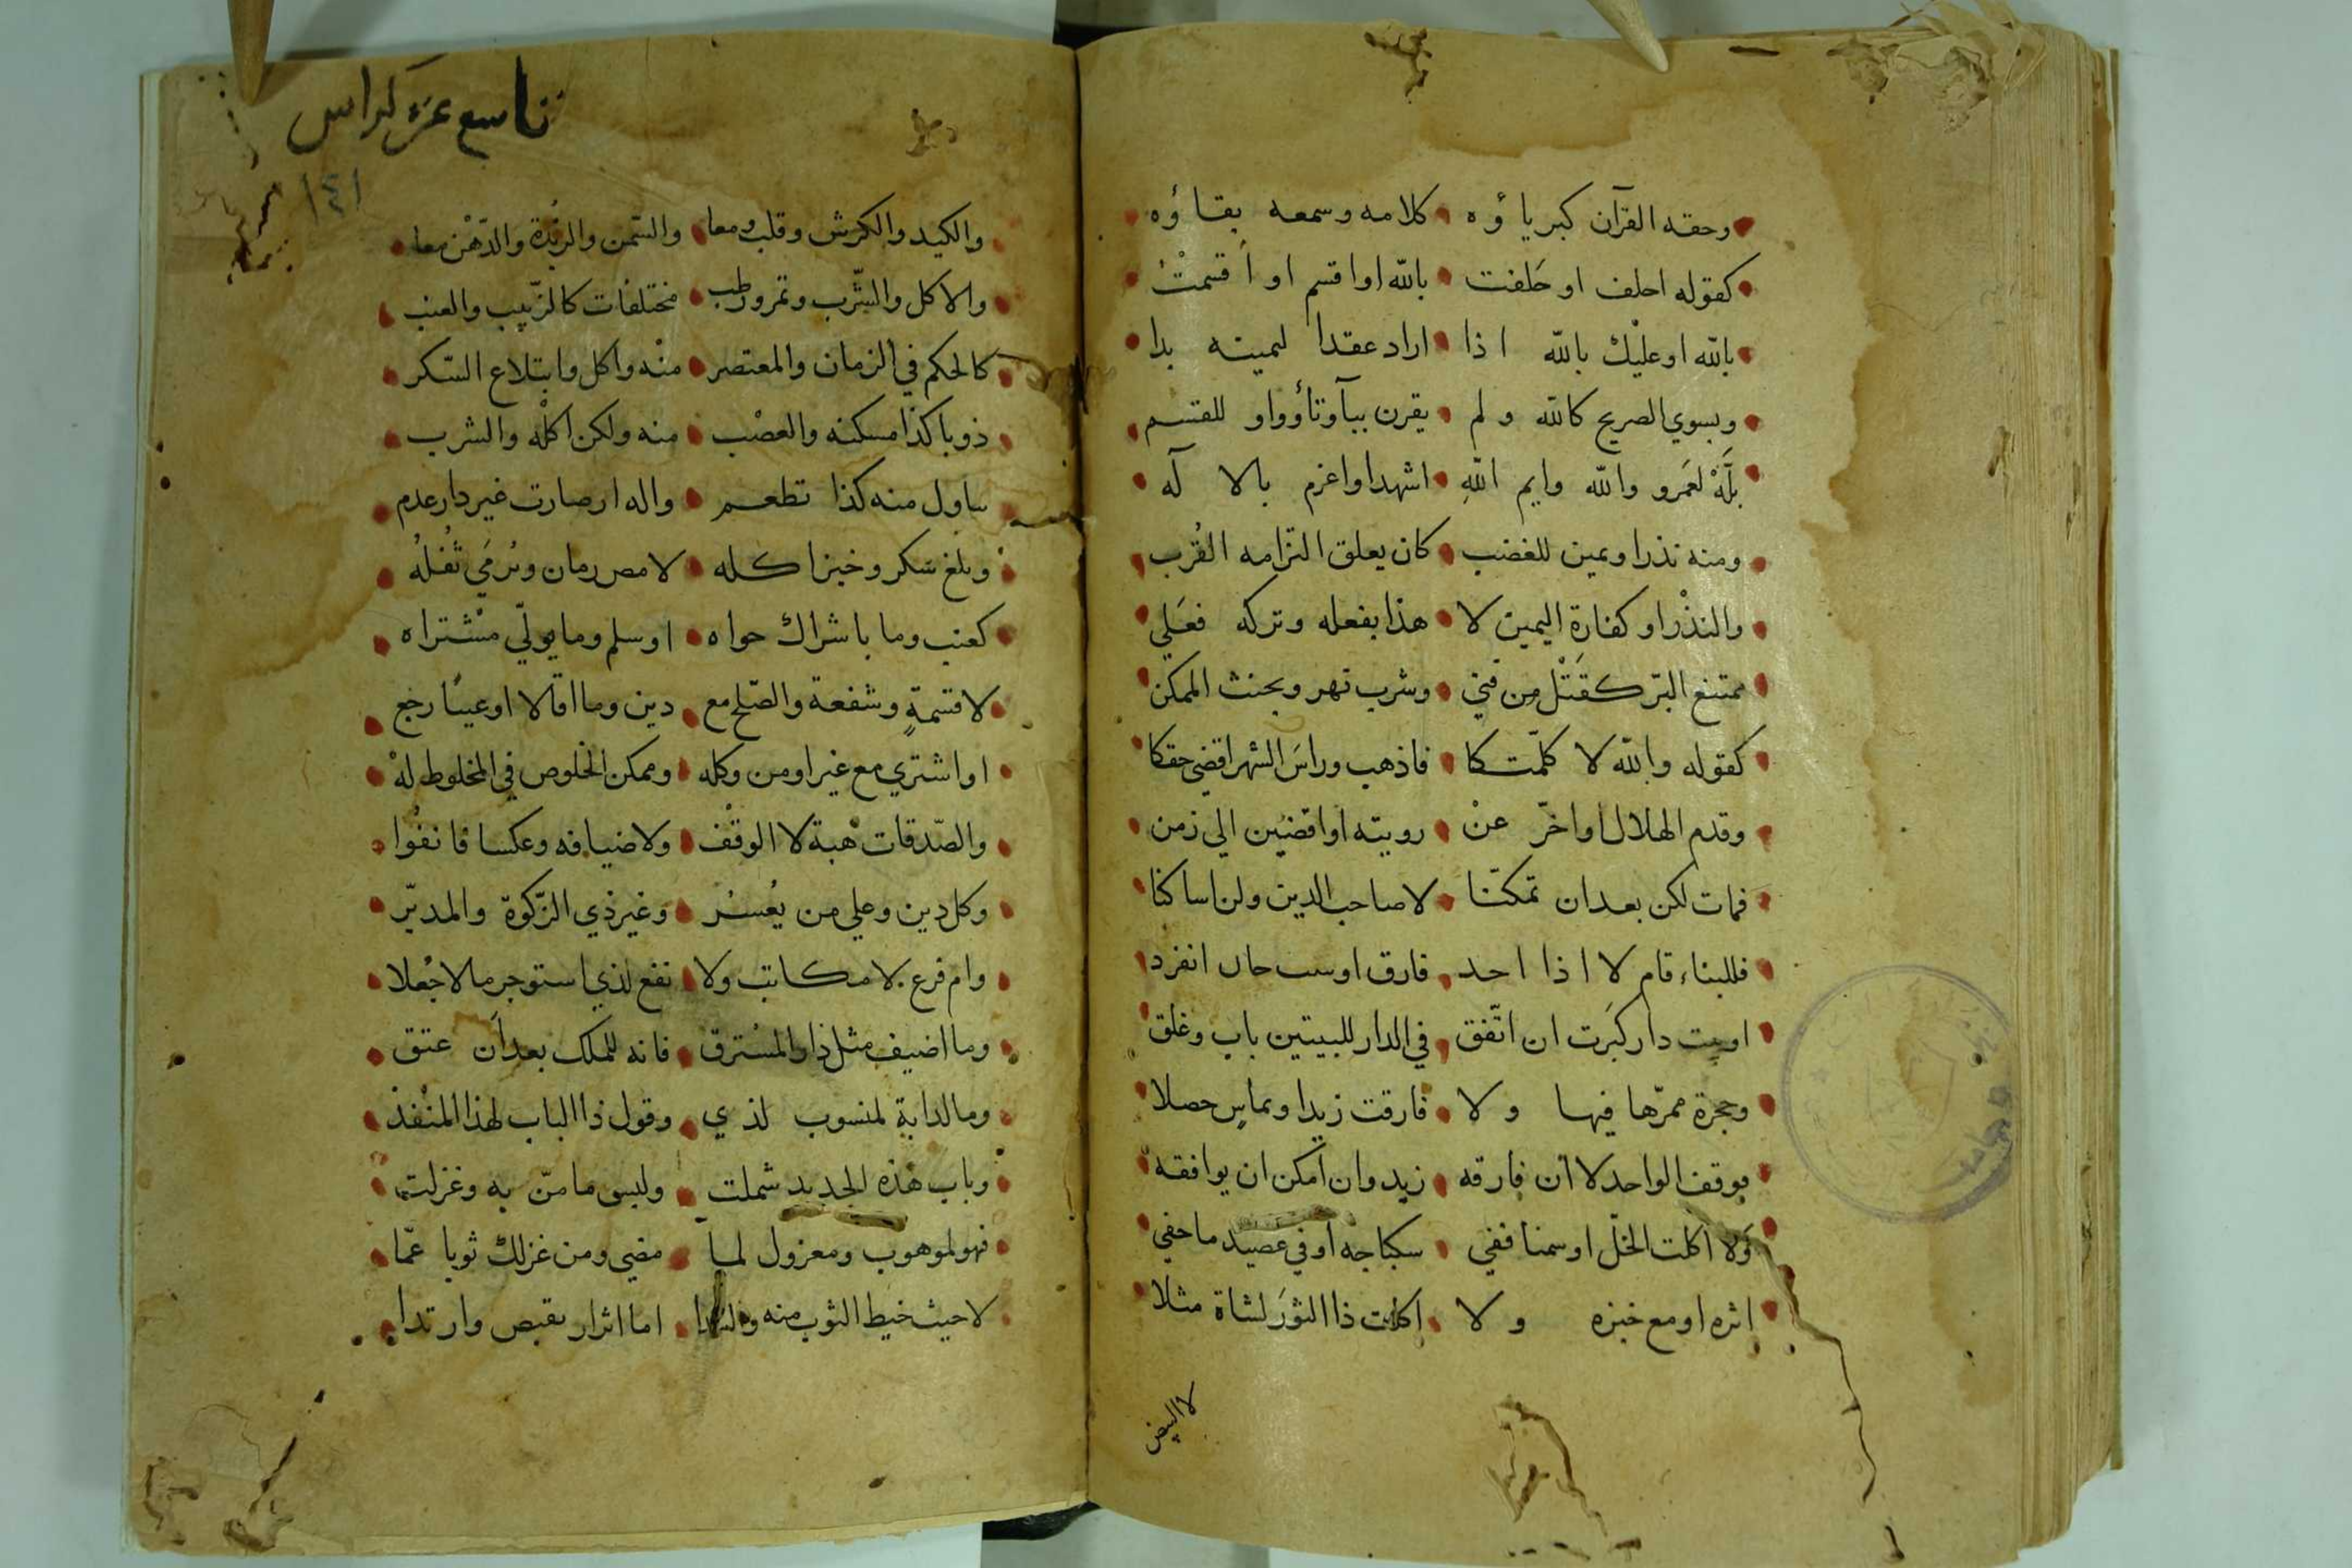 وحقه القرآن كبرياؤه كلامه وسمعه بقاؤه
كقوله احلف او حَلفت بالله او اقسم او اَقسمتُ
بالله او عليْك بالله اذا اراد عقدا ليمينه بدا
ويسوي الصريح كالله ولم يقرن ببآ وتأ وواو للقسم
بلَّهْ لعَمرو والله وايم اللهِ اشهد او اعزم بالا لَه
ومنه نذرا ويمين للغضب كان يعلق التزامه القُرب
والنذْر او كفارة اليمين لا هذا بفعله وتركه فعَلي
ممتنع البرّ كقَتْل مِن فني وشرب نهر ويحنث الممكن
كقوله والله لا كلّمتكا فاذهب وراسَ الشهر اقضي حقكا
وقدم الهلال او اخّر عنْ رويته او اقضيَن الي زمن
فمات لكن بعد ان تمكّنا لا صاحب الدين ولن اساكنا
فللبناء قام لا اذا احد فارق او حان انفرد
او بيت دار كبَرت ان اتّفق في الدار للبيتين باب وغلق
وحجرة ممرّها فيها ولا فارقت زيدا وتماسٍ حصلا
بوقف الواحد لا ان فارقه زيد وان امكن ان يوافقه
وَلا اكلت الخلّ او سمنا ففي سكباجه او في عصيد ما خفي
اثره او مع خبزه ولا اكلت ذا الثورَ لشاة مثلا
لا البيض
تاسع عشره كراس
١٤١
والكبد والكرش وقلب ومعا والسّمن والزبْدة والدّهْن معا
والاكل والشّرب وتمر ورطب مختلفات كالزّبيب والعنب
كالحكم في الزمان والمعتصر منْه واكل وابتلاع السّكر
ذوبا كذا مسكنه والعصْب منه ولكن اكلْه والشرب
تناول منه كذا تطعم واله ار صارت غير دار عدم
وبلغ سَكر وخبزا كله لا مص رمان ويُرمَي ثُفْلُهُ
كعنب وما باشراك حواه او سلم وما يولّي مشْتراه
لا قسْمةٍ وشفعة والصّلح مع دين وما اقالا او عيبًا رجع
او اشتري مع غير او من وكله وممكن الخلوص في المخلوط لهْ
والصّدقات هبة لا الوقْف ولا ضيافه وعكسا فانفُوا
وكل دين وعلي من يُعْسر وغير ذي الزّكوة والمدبّر
وام فرع لا مكاتب ولا نفع لذي استوجر مالا جُعلا
وما اضيف مثل دار المسْترق فانه للملك بعد اَن عتق
وما لدابةٍ لمنسوب لذي وقول ذا الباب لهذا المنْفذ
وباب هذه الجديد شملت ولبس ما منّ به وغزلت
فهو لموهوب ومعزول لما مضي ومن غزلك ثوبا عمّا
لا حيث خيط الثوب منه والسّدا اما اتزار بقميص وارتدا